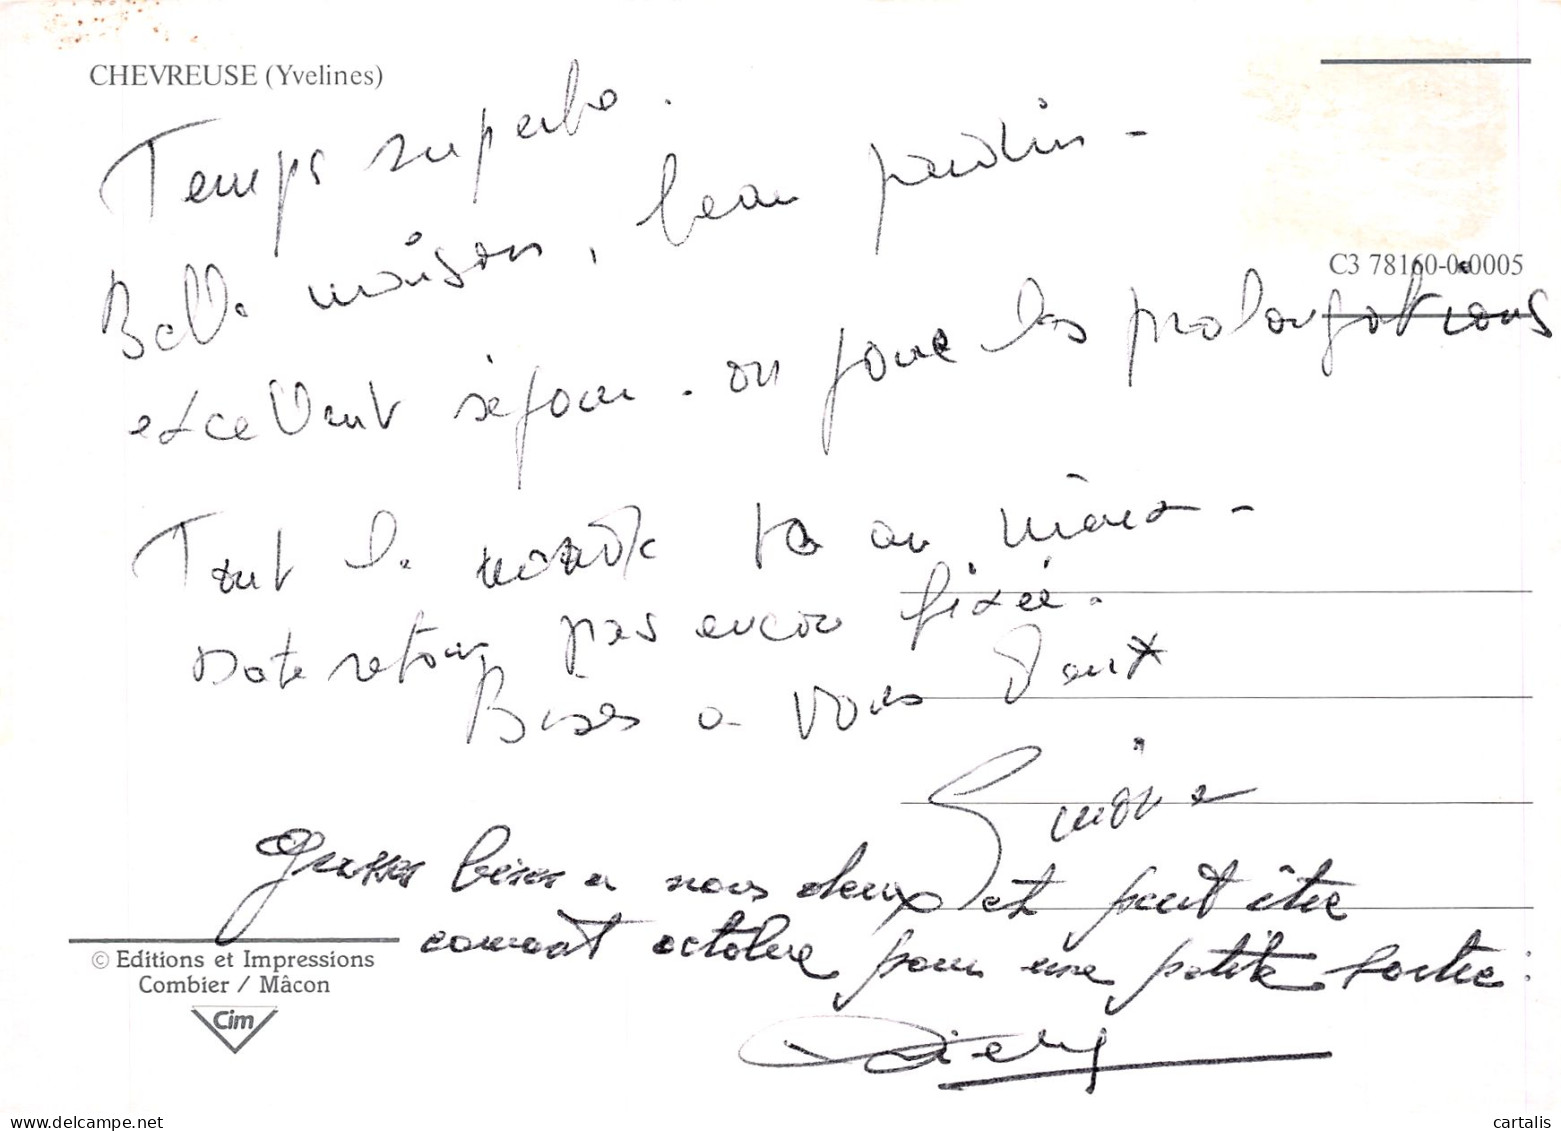 CHEVREUSE (Yvelines)
Temps superbe.
Belle maison, beau jardin -
C3 78160-0.0005
excellent séjour. on joue les prolongations
Tout le monde va au mieux -
Date retour pas encore fixée.
Bises a vous Deux
grosses bises a vous deux et peut être
courant octobre pour une petite sortie :
© Editions et Impressions
Combier / Mâcon
Cim
cartalis